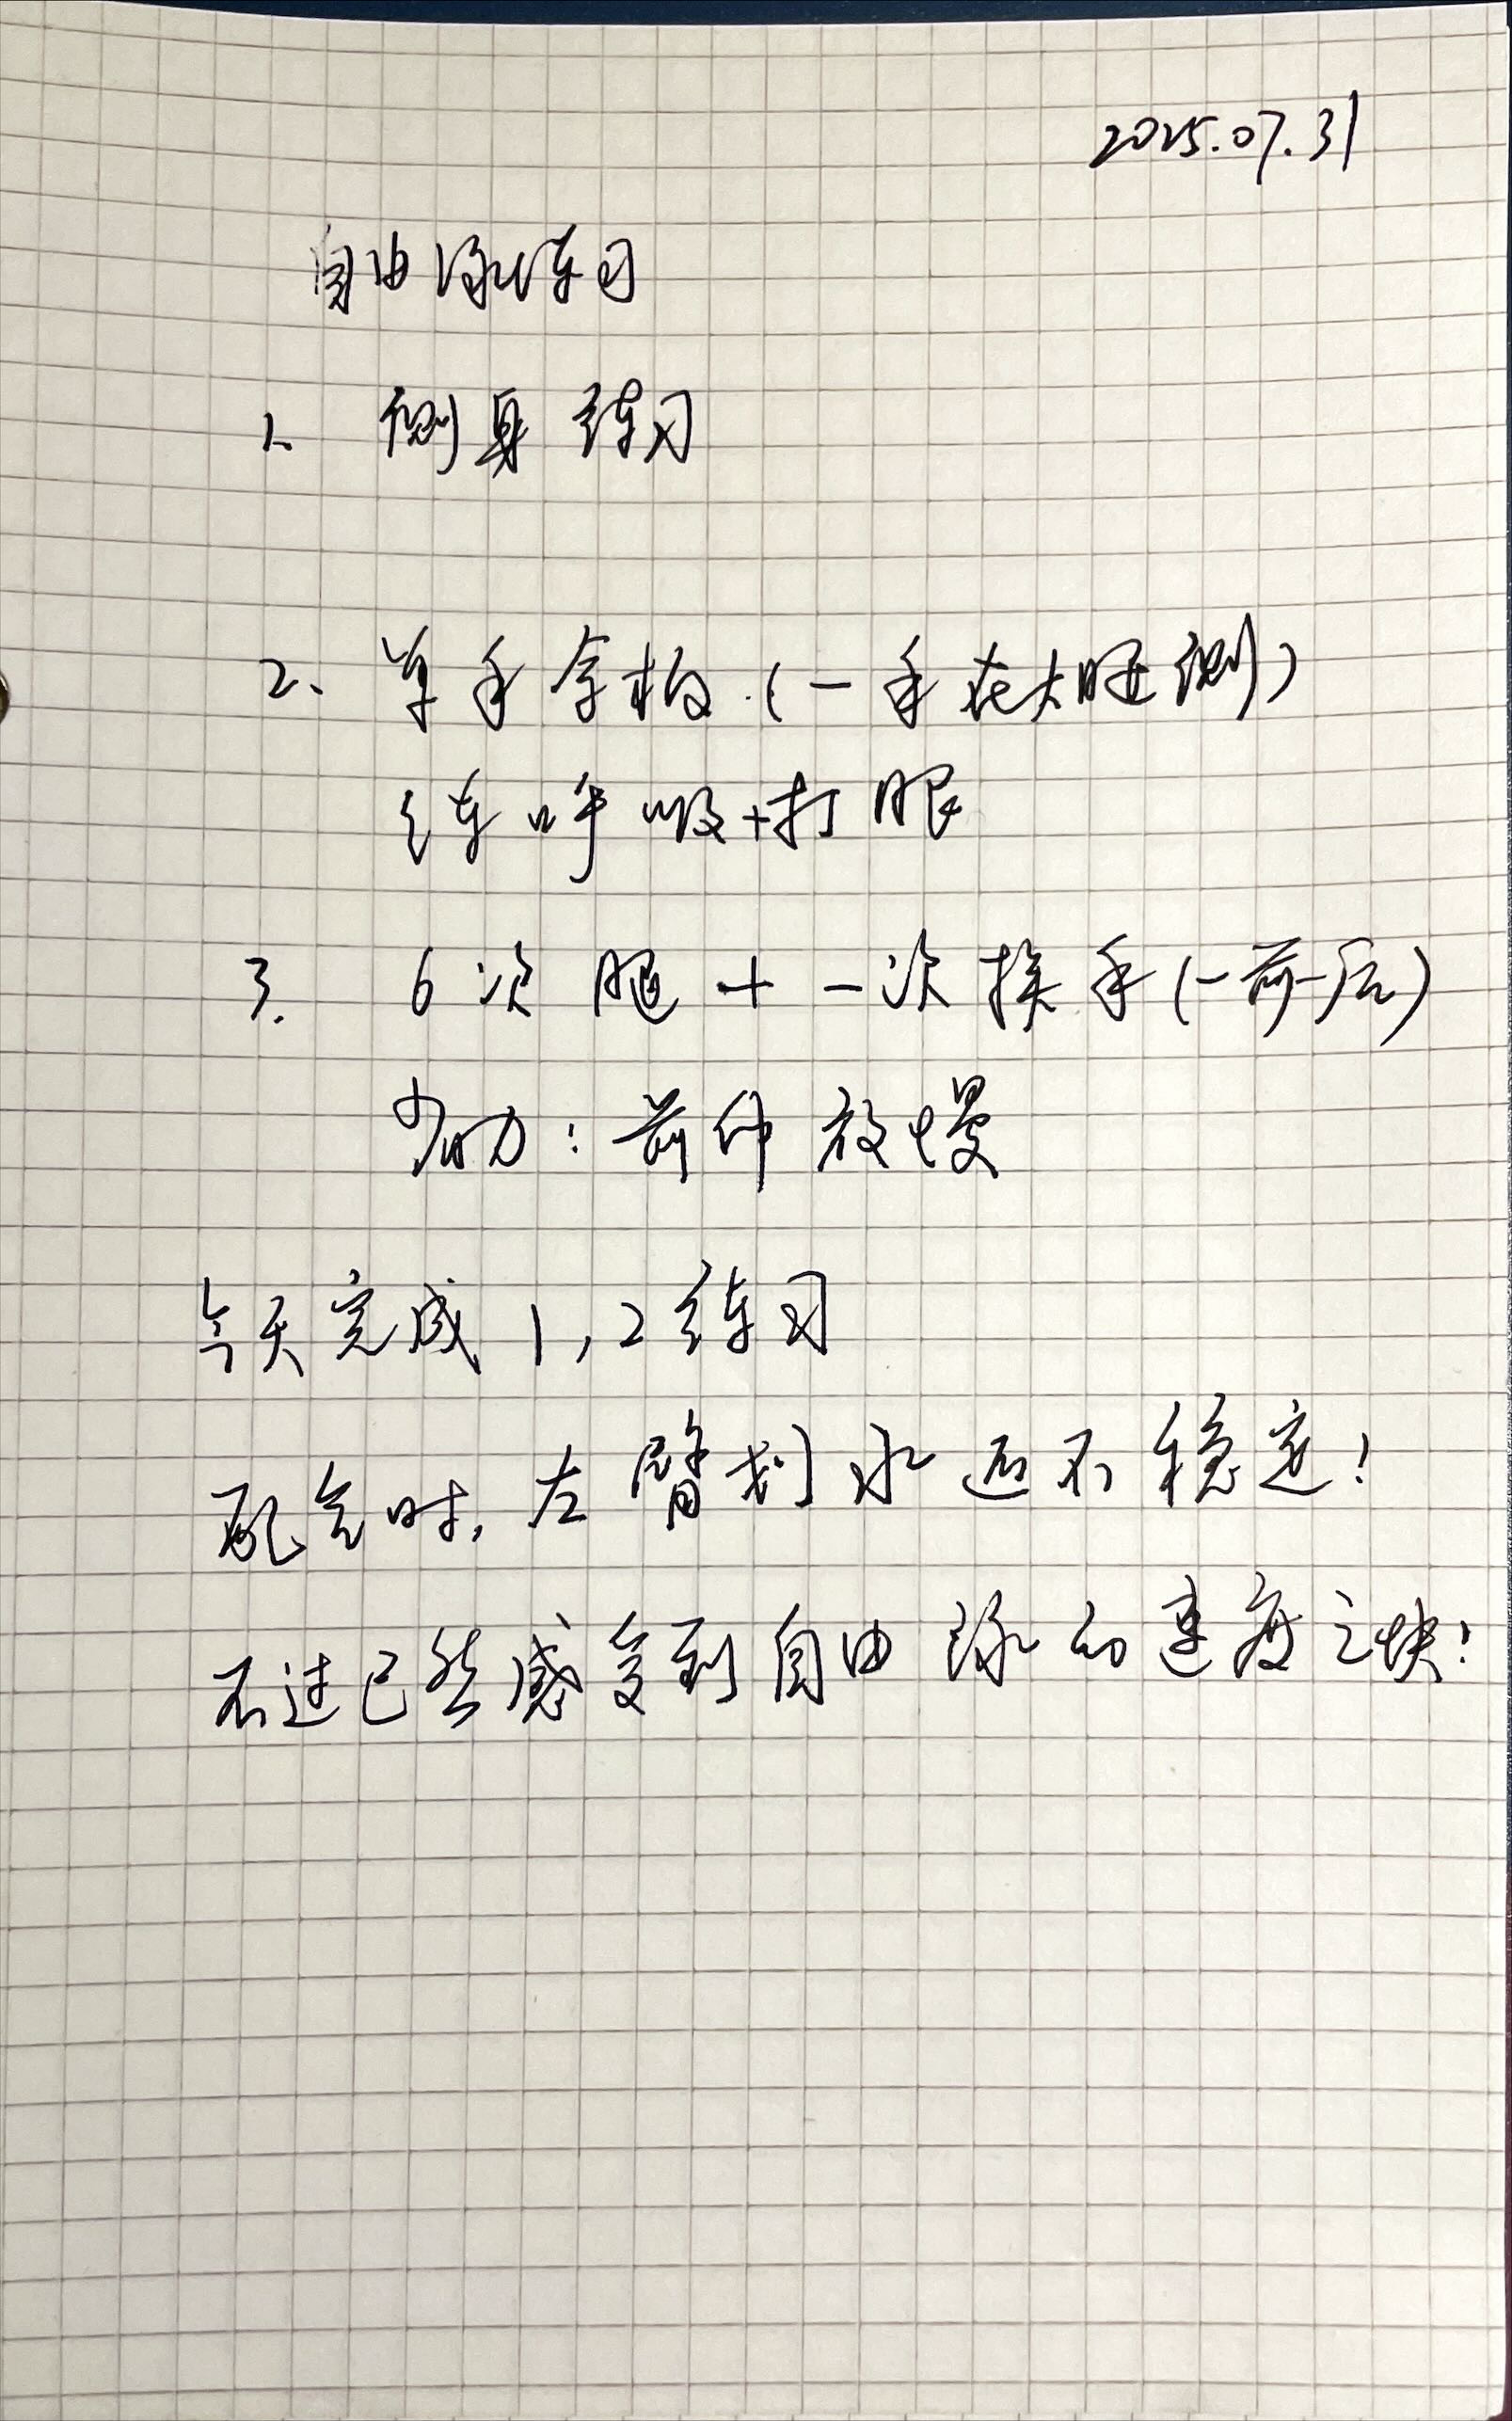 2025.07.31
自由泳练习
1. 侧身练习
2. 单手拿板(一手在大腿侧)
练呼吸+打腿
3. 6次腿+一次换手(一前一后)
助力:前伸放慢
今天完成1,2练习
配气时,左臂划水还不稳定!
不过已然感受到自由泳的速度之快!